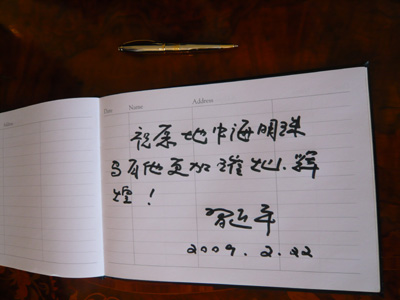 Name
Address
祝愿地中海明珠
马耳他更加璀灿、辉
煌！
习近平
2009.2.22